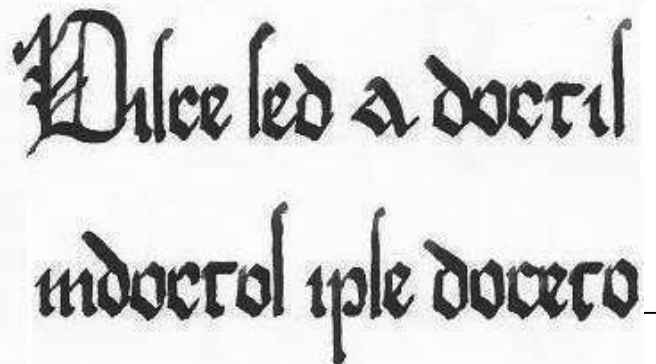 Diſce ſed a doctiſ
indoctoſ ipſe doceto